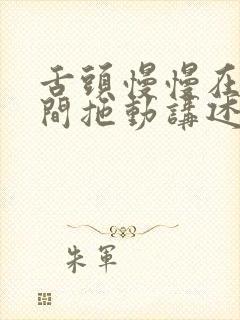 舌頭慢慢在
間拖動講述
朱軍